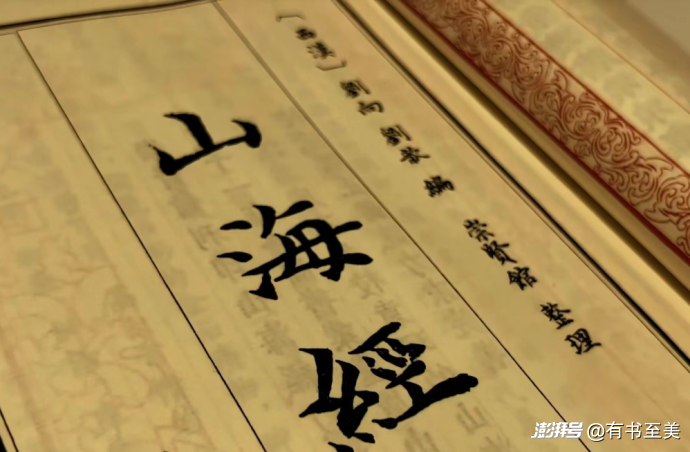 〔西漢〕劉向 劉歆 編 崇賢館 整理
山海經
澎湃号 @有书至美